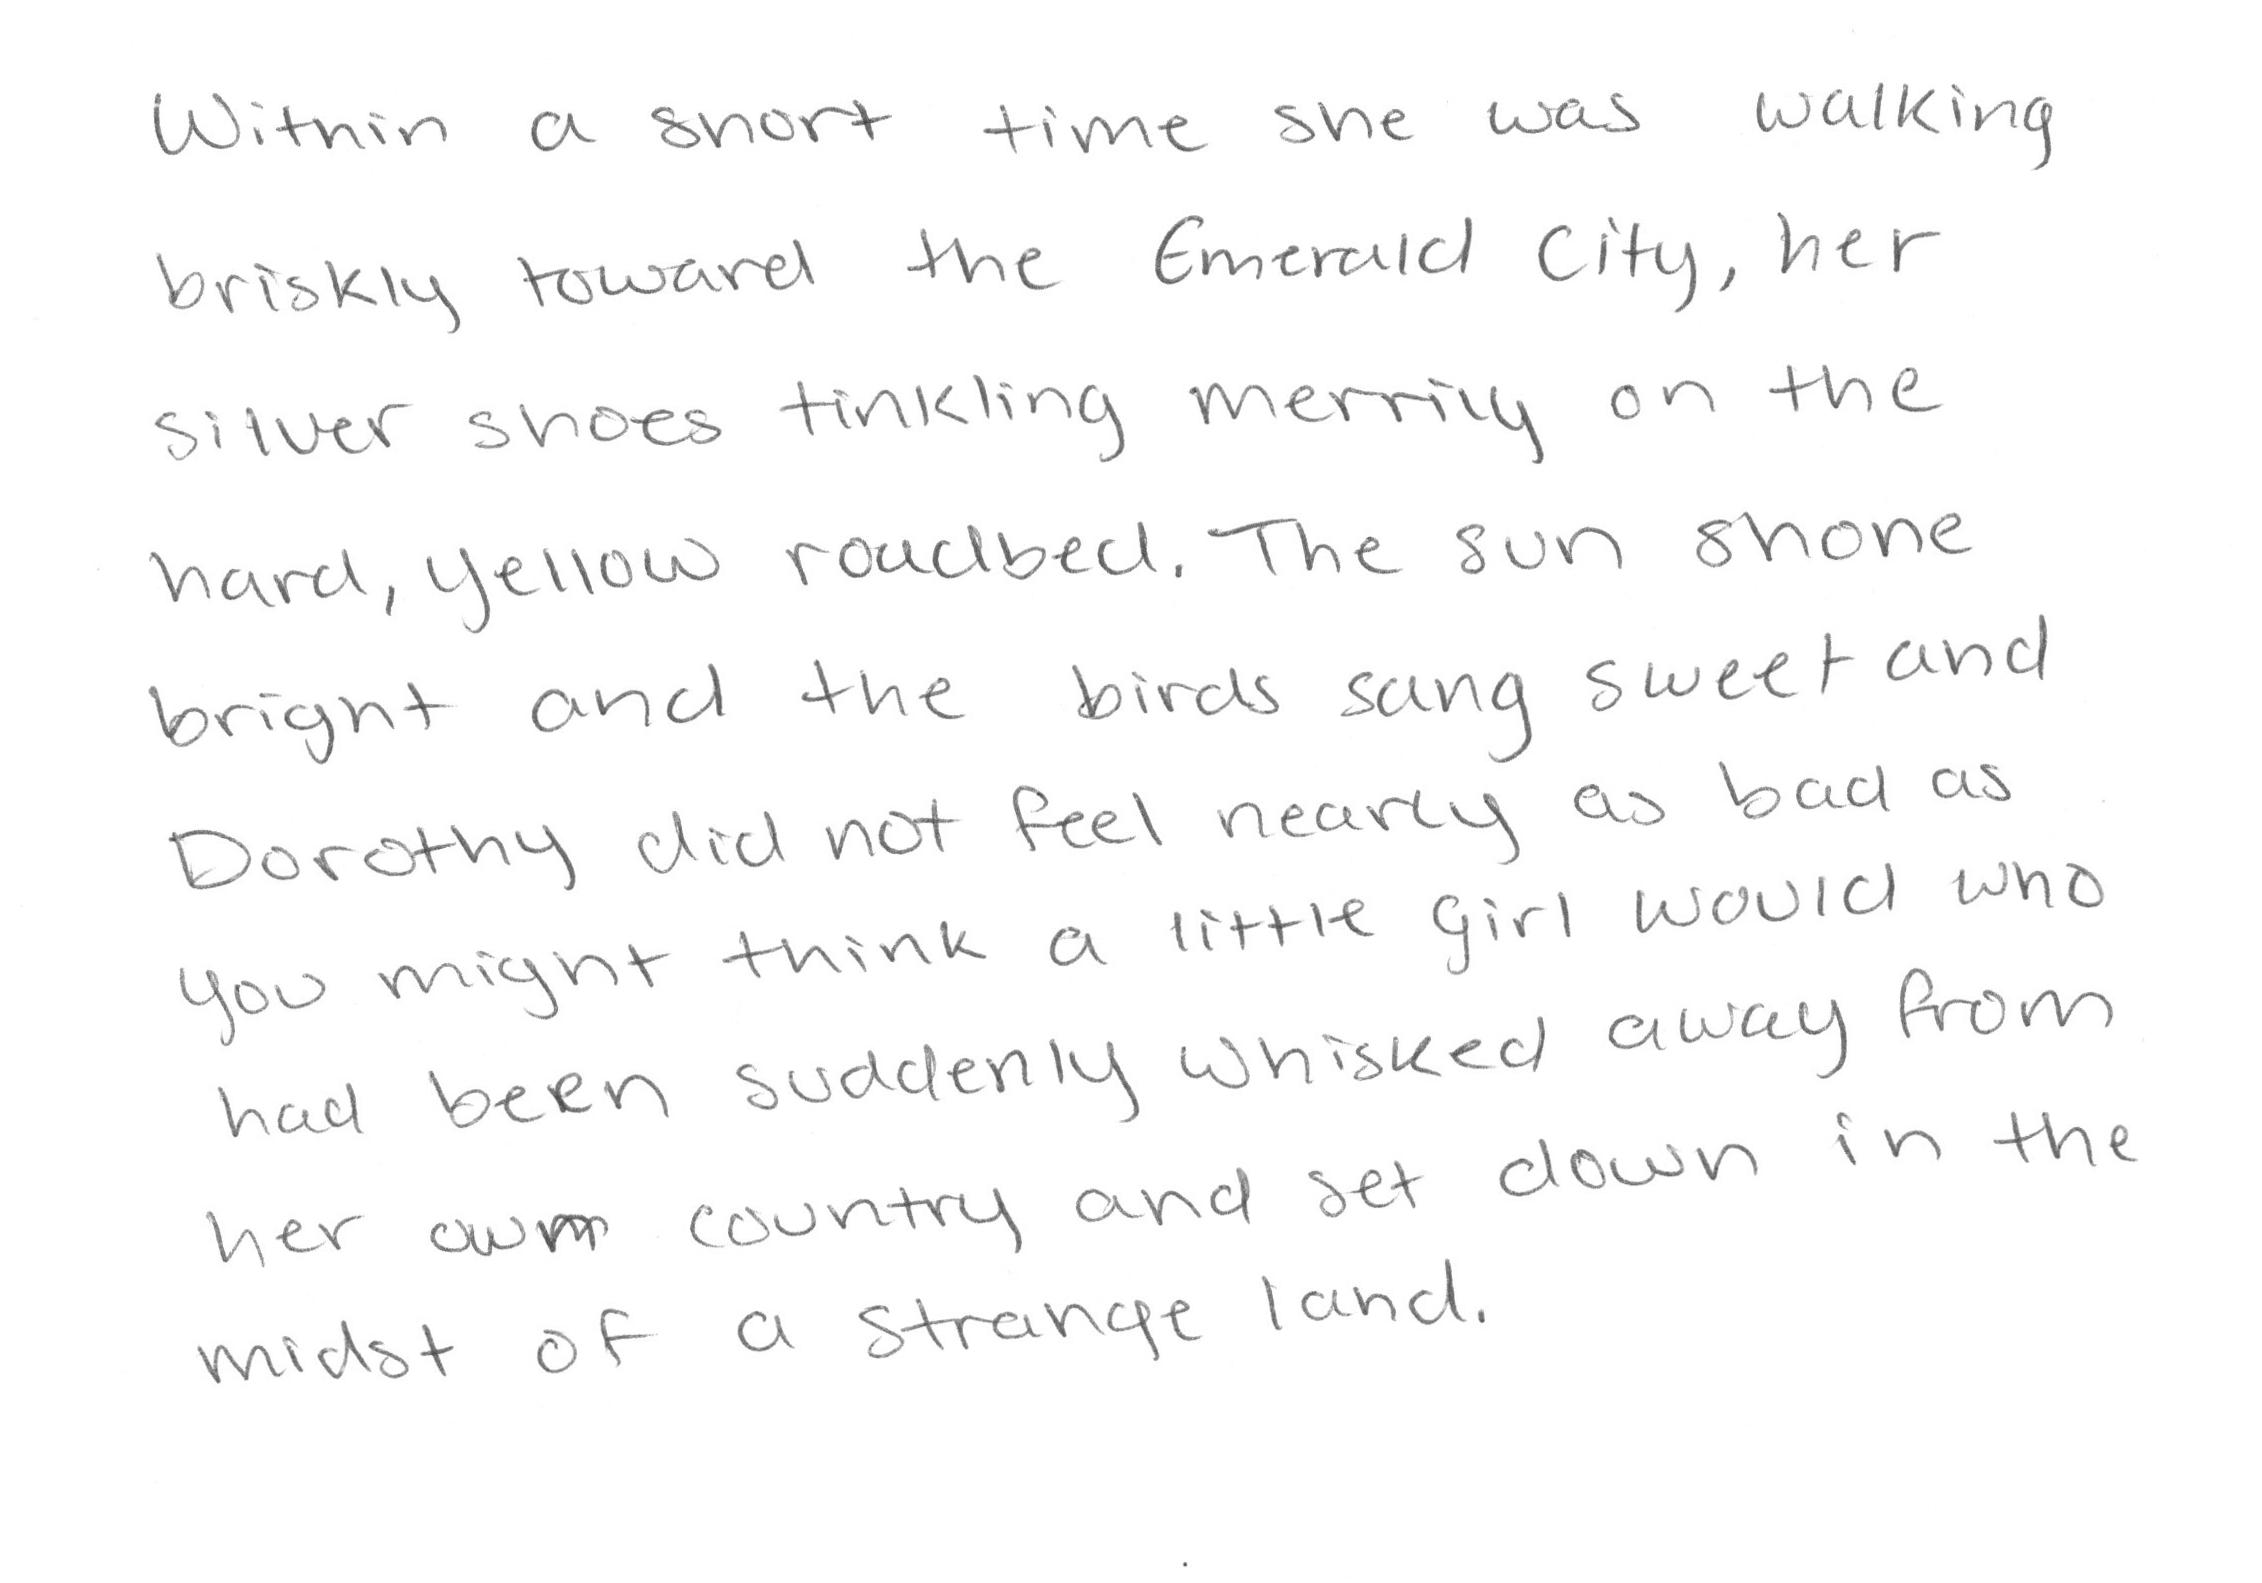 Within a short time she was walking
briskly toward the Emerald City, her
silver shoes tinkling merrily on the
hard, yellow roadbed. The sun shone
bright and the birds sang sweet and
Dorothy did not feel nearly as bad as
you might think a little girl would who
had been suddenly whisked away from
her own country and set down in the
midst of a strange land.